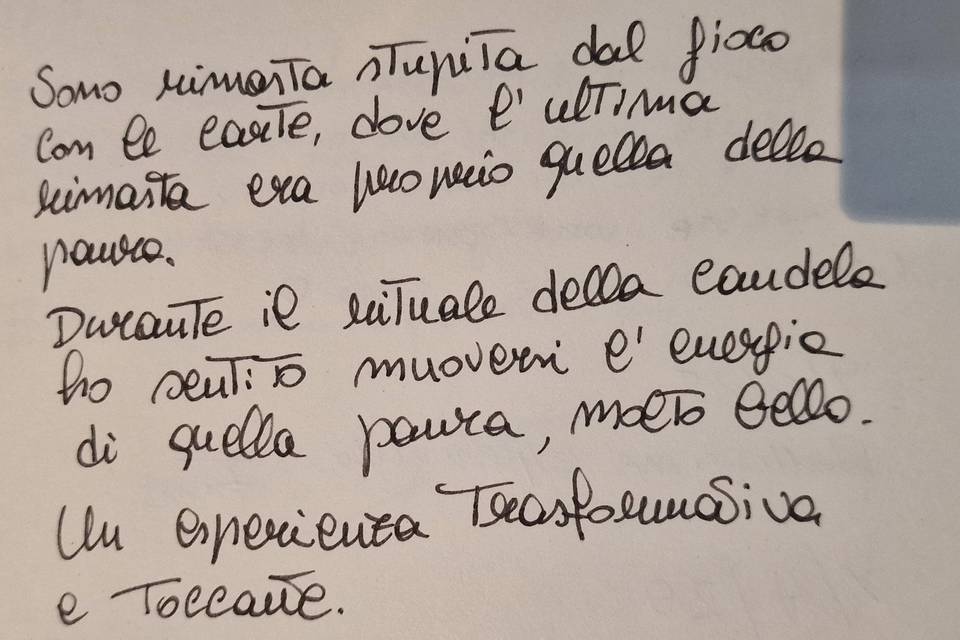 Sono rimasta stupita dal gioco
con le carte, dove l'ultima
rimasta era proprio quella della
paura.
Durante il rituale della candela
ho sentito muoversi l'energia
di quella paura, molto bello.
Un esperienza Trasformativa
e Toccante.